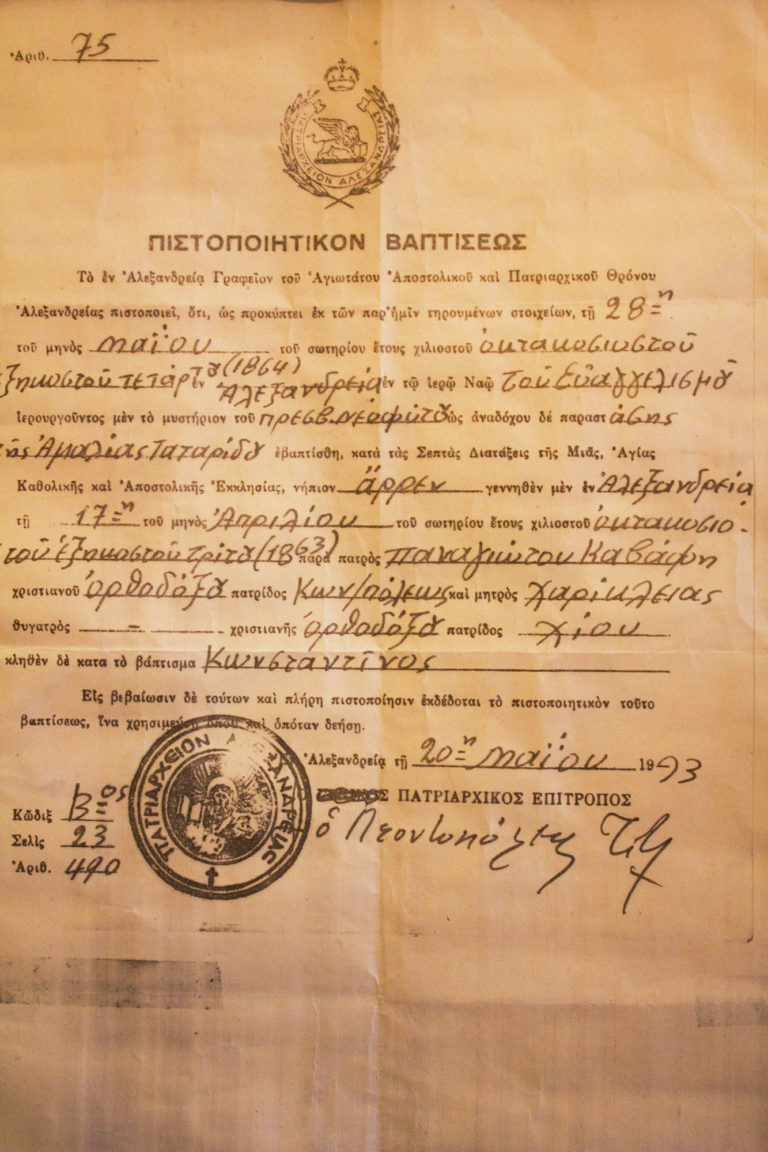 Ἀριθ. 75
ΠΑΤΡΙΑΡΧΕΙΟΝ ΑΛΕΞΑΝΔΡΕΙΑΣ
ΠΙΣΤΟΠΟΙΗΤΙΚΟΝ ΒΑΠΤΙΣΕΩΣ
Τὸ ἐν Ἀλεξανδρείᾳ Γραφεῖον τοῦ Ἁγιωτάτου Ἀποστολικοῦ καὶ Πατριαρχικοῦ Θρόνου
Ἀλεξανδρείας πιστοποιεῖ, ὅτι, ὡς προκύπτει ἐκ τῶν παρ' ἡμῖν τηρουμένων στοιχείων, τῇ 28ῃ
τοῦ μηνὸς Μαΐου τοῦ σωτηρίου ἔτους χιλιοστοῦ ὀκτακοσιοστοῦ
ἑξηκοστοῦ τετάρτου (1864) ἐν Ἀλεξανδρείᾳ ἐν τῷ ἱερῷ Ναῷ τοῦ Εὐαγγελισμοῦ
ἱερουργοῦντος μὲν τὸ μυστήριον τοῦ πρεσβ. Νεοφύτου ὡς ἀναδόχου δέ παραστάσης
τῆς Ἀμαλίας Παταρίδου ἐβαπτίσθη, κατὰ τὰς Σεπτὰς Διατάξεις τῆς Μιᾶς, Ἁγίας
Καθολικῆς καὶ Ἀποστολικῆς Ἐκκλησίας, νήπιον ἄρρεν γεννηθὲν μὲν ἐν Ἀλεξανδρείᾳ
τῇ 17ῃ τοῦ μηνὸς Ἀπριλίου τοῦ σωτηρίου ἔτους χιλιοστοῦ ὀκτακοσιο-
τοῦ ἑξηκοστοῦ τρίτου (1863) παρὰ πατρὸς Παναγιώτου Καβάφη
χριστιανοῦ ὀρθοδόξου πατρίδος Κων/πόλεως καὶ μητρὸς Χαρίκλειας
θυγατρὸς — χριστιανῆς ὀρθοδόξου πατρίδος Χίου
κληθὲν δὲ κατα τὸ βάπτισμα Κωνσταντῖνος
Εἰς βεβαίωσιν δὲ τούτων καὶ πλήρη πιστοποίησιν ἐκδέδοται τὸ πιστοποιητικὸν τοῦτο
βαπτίσεως, ἵνα χρησιμεύσῃ ὅπου καὶ ὁπόταν δεήσῃ.
Ἀλεξανδρείᾳ τῇ 20ῃ Μαΐου 1993
ΠΑΤΡΙΑΡΧΙΚΟΣ ΕΠΙΤΡΟΠΟΣ
ὁ Λεοντοπόλεως
ΠΑΤΡΙΑΡΧΕΙΟΝ ΑΛΕΞΑΝΔΡΕΙΑΣ
Κῶδιξ Β=ος
Σελὶς 23
Ἀριθ. 490